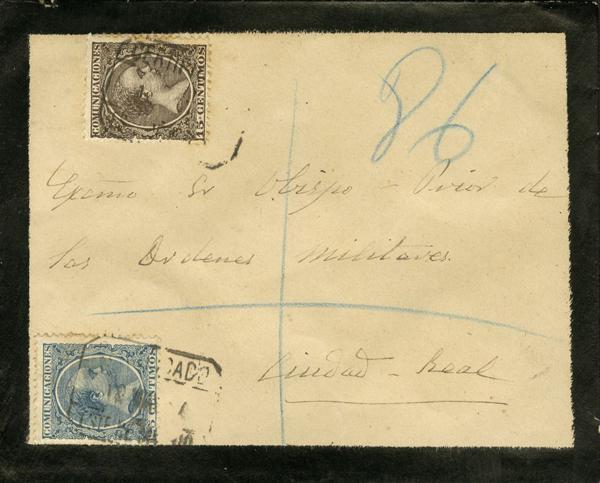 COMUNICACIONES 15 CENTIMOS
86
Excmo Sr Obispo - Prior de
las Ordenes Militares.
Ciudad - Real
COMUNICACIONES CENTIMOS
CADO